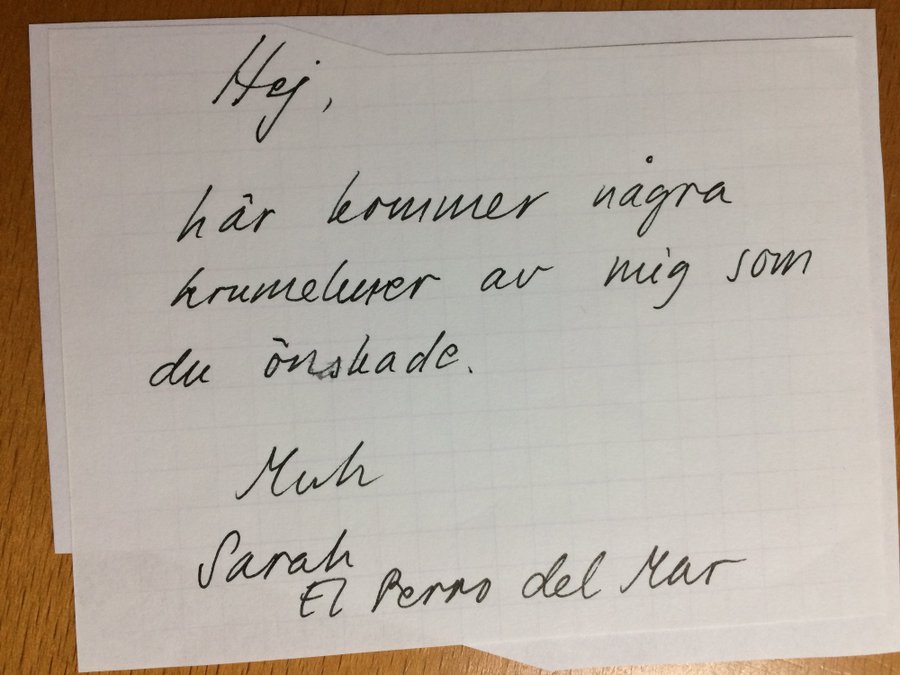 Hej,
här kommer några
krumelurer av mig som
du önskade.
Muh
Sarah
El Perro del Mar